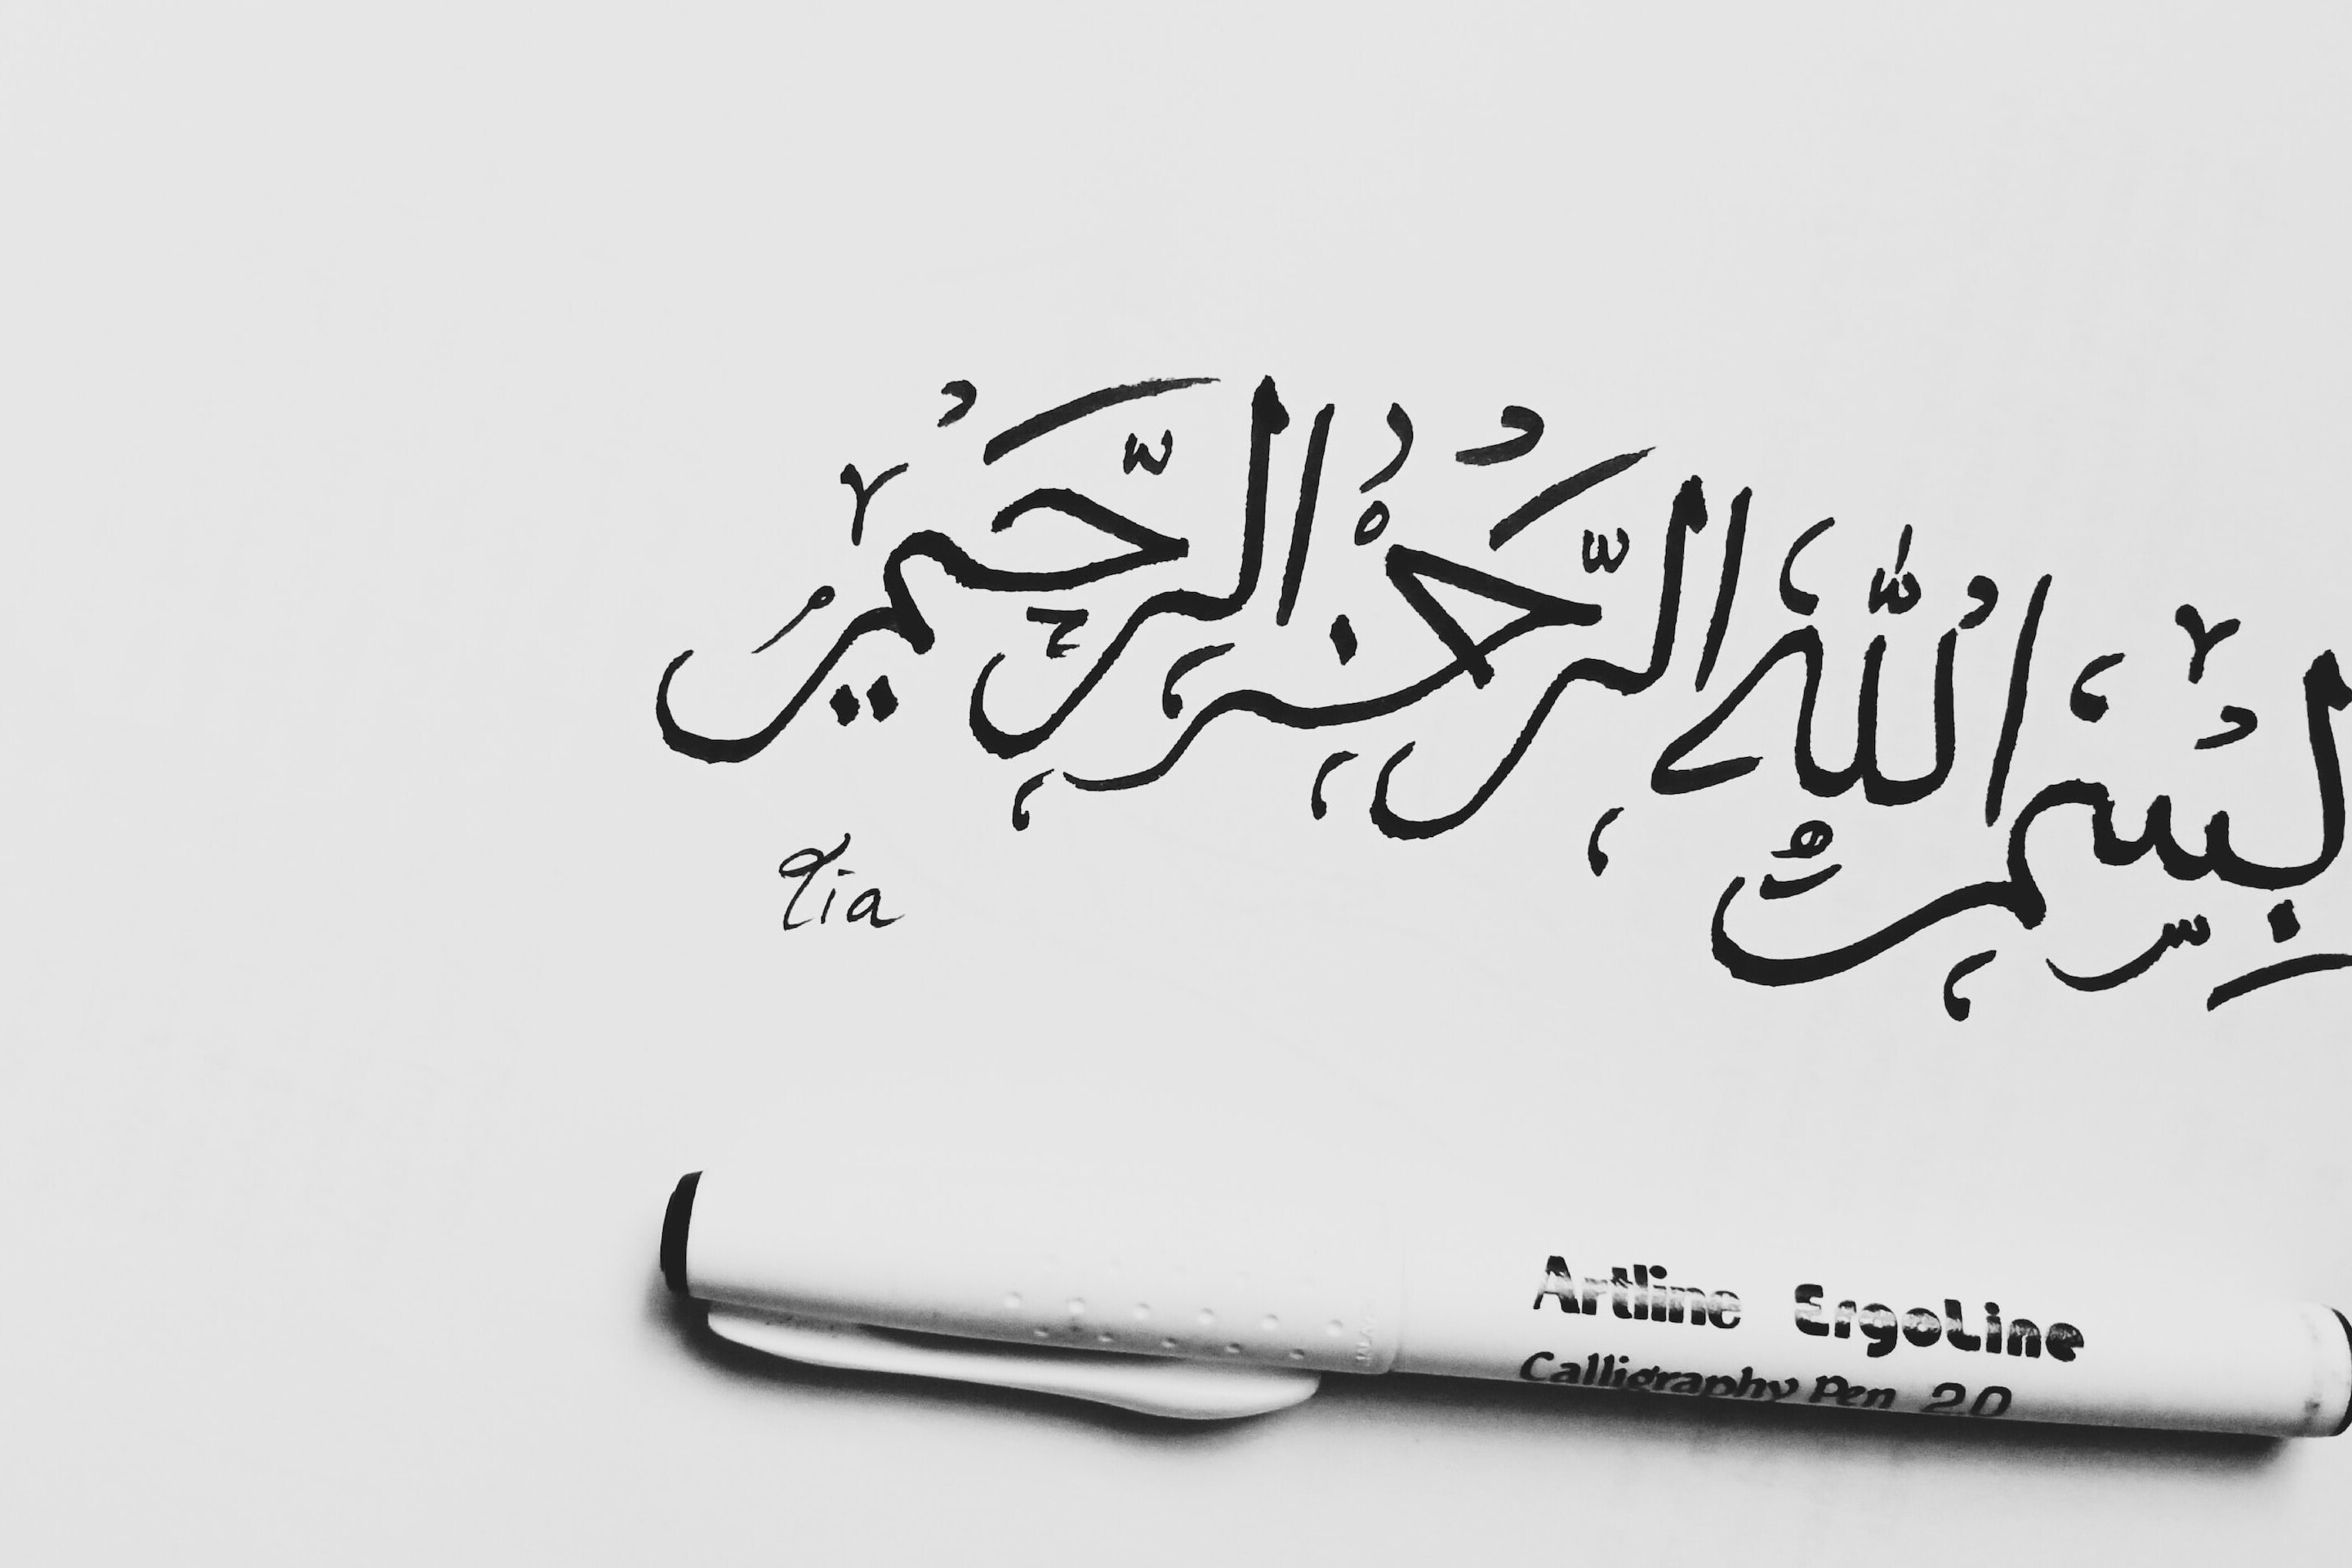 بسم الله الرحمن الرحيم
Tia
Artline ErgoLine
Calligraphy Pen 2.0